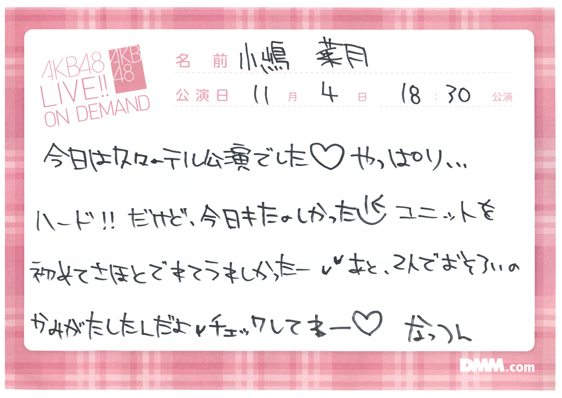 AKB48
LIVE!!
ON DEMAND
AKB
48
名前 小嶋 菜月
公演日 11月 4日 18:30 公演
今日は久々のテル公演でした♡ やっぱり...
ハード!! だけど、今日もたのしかった ユニットを
初めてさほとできてうれしかったー あと、2人でおそろいの
かみがたしたんだよ チェックしてねー♡ なっつん
DMM.com